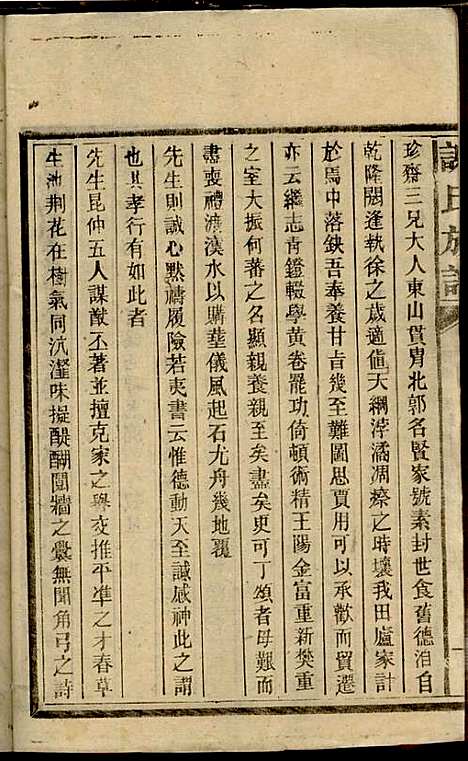 氏族譜
珍齋三兄大人東山貫胄北郭名賢家號素封世食舊德洎自
乾隆閼逢執徐之歲適值天綱浡潏凋瘵之時壤我田廬家計
於焉中落缺吾奉養甘旨幾至難圖思賈用可以承歡而貿遷
亦云繼志青鐙輟學黃卷罷功倚頓術精王陽金富重新樊重
之室大振何蕃之名顯親養親至矣盡矣更可丁頌者母艱而
盡喪禮渡漢水以購塟儀風起石尤舟幾地覆
先生則誠心默禱履險若夷書云惟德動天至諴感神此之謂
也其孝行有如此者
先生昆仲五人謀猷丕著並擅克家之譽交推平準之才春草
生池荆花在樹氣同沆瀣味挹醍醐䦧牆之釁無聞角弓之詩